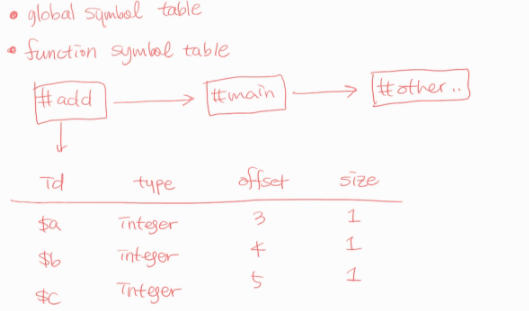 • global symbol table
• function symbol table
#add #main #other..
id type offset size
$a integer 3 1
$b integer 4 1
$c integer 5 1